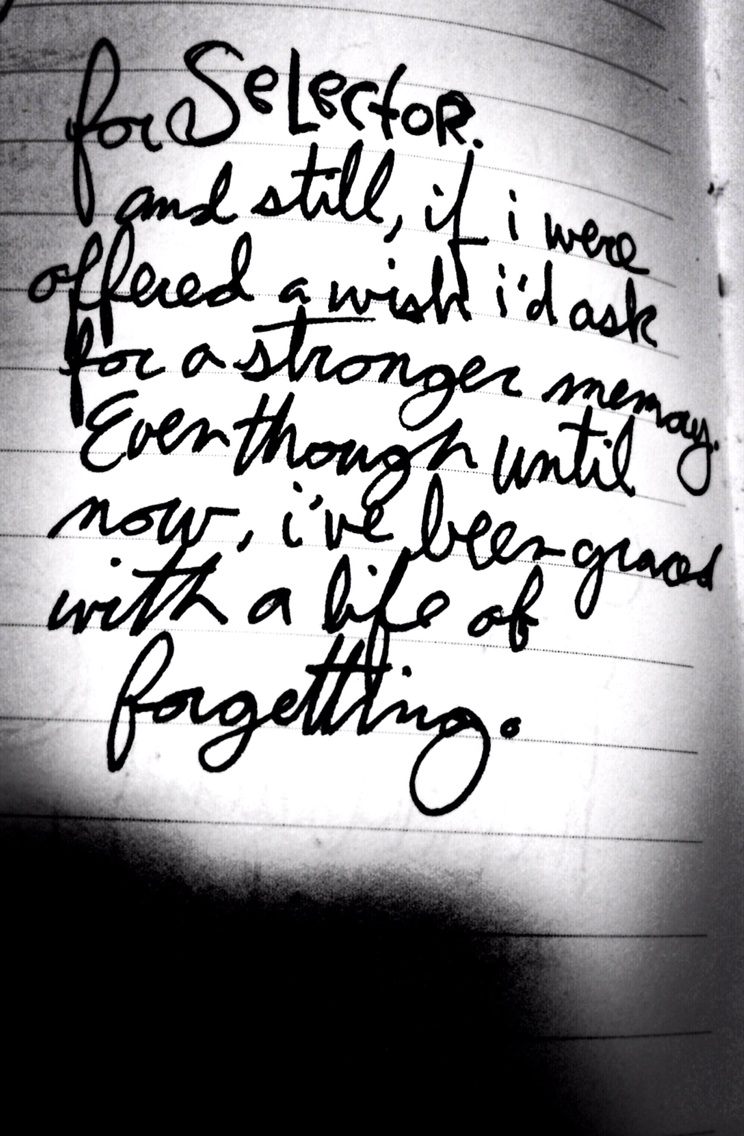 for SeLectoR.
and still, if i were
offered a wish i'd ask
for a stronger memory.
Even though until
now, i've been graced
with a life of
forgetting.